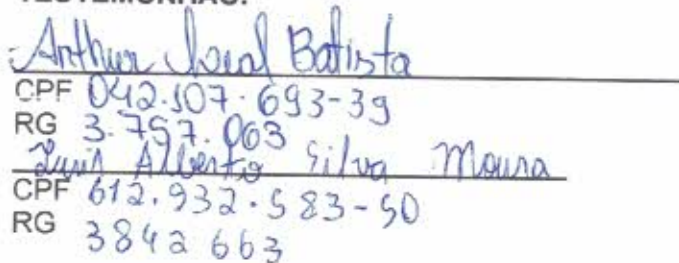 TESTEMUNHAS:
Arthur Leal Batista
CPF 042.107.693-39
RG 3.757.063
Luis Alberto Silva Moura
CPF 612.932.583-50
RG 3842 663